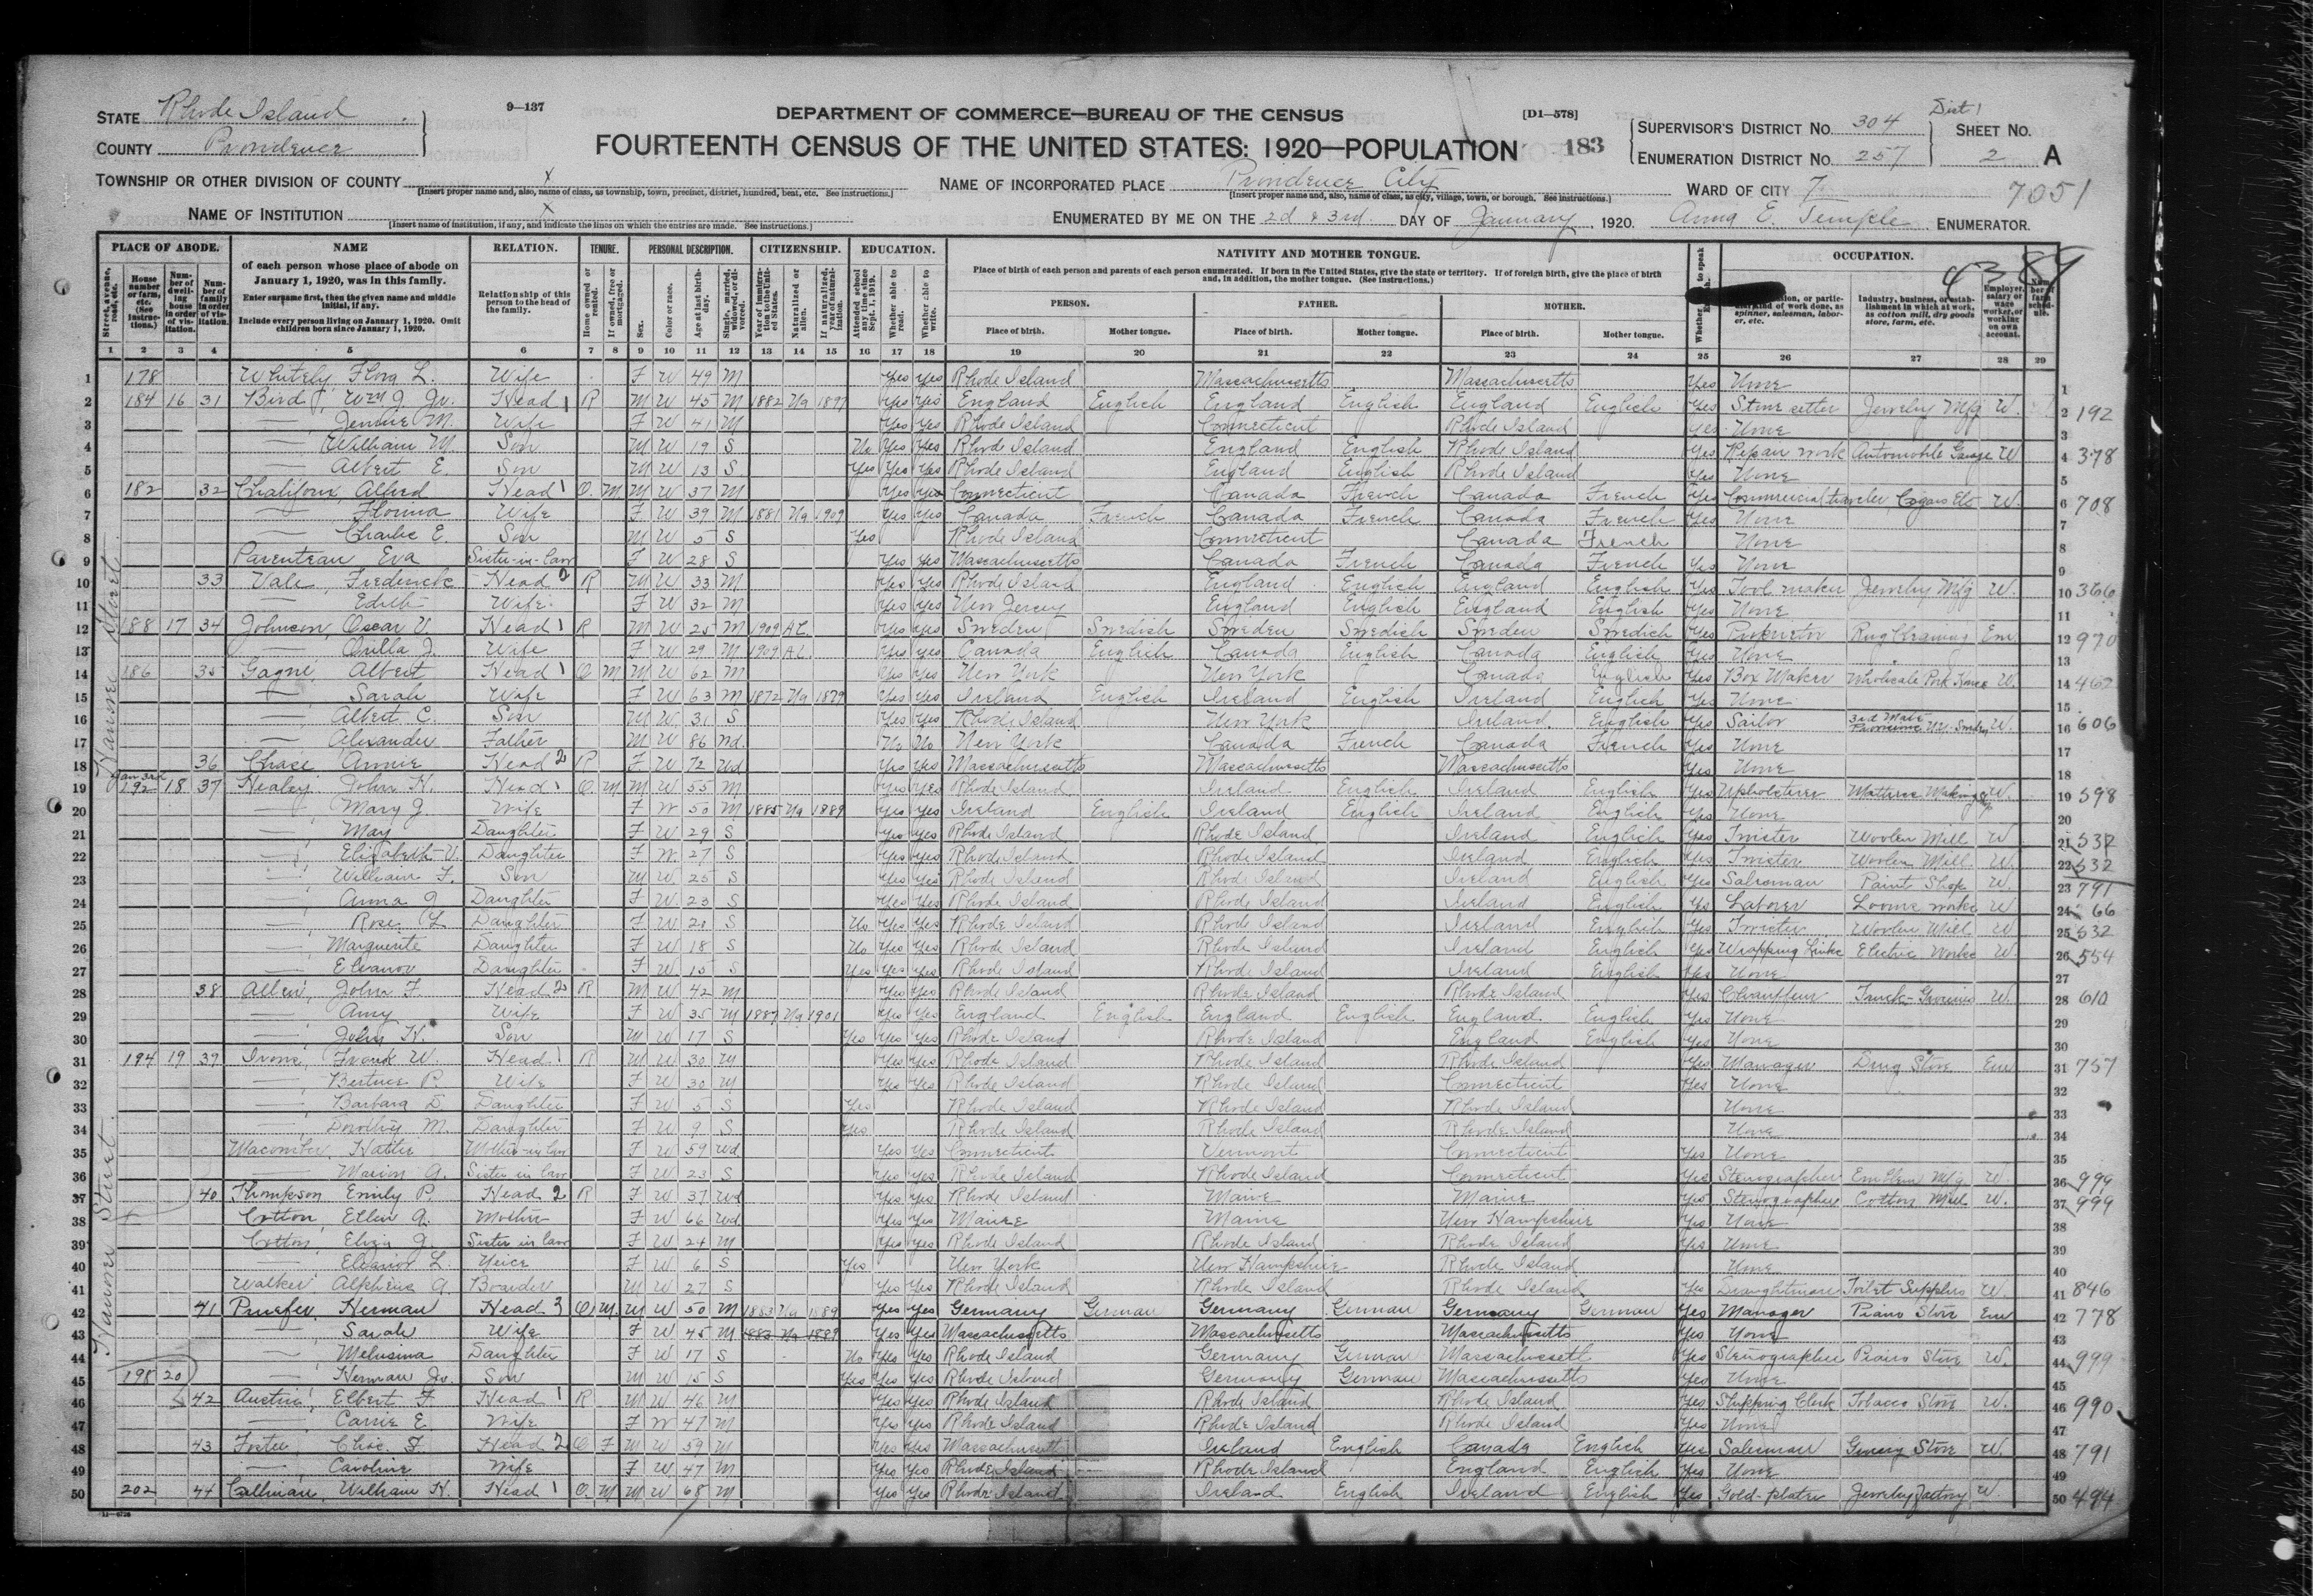 STATE Rhode Island
COUNTY Providence
9—137
DEPARTMENT OF COMMERCE—BUREAU OF THE CENSUS
[D1—578]
FOURTEENTH CENSUS OF THE UNITED STATES: 1920—POPULATION 183
SUPERVISOR'S DISTRICT No. 304
ENUMERATION DISTRICT No. 257
Dist 1
SHEET No. 2 A
TOWNSHIP OR OTHER DIVISION OF COUNTY x
[Insert proper name and, also, name of class, as township, town, precinct, district, hundred, beat, etc. See instructions.]
NAME OF INCORPORATED PLACE Providence City
[Insert proper name and, also, name of class, as city, village, town, or borough. See instructions.]
WARD OF CITY 7 7051
NAME OF INSTITUTION x
[Insert name of institution, if any, and indicate the lines on which the entries are made. See instructions.]
ENUMERATED BY ME ON THE 2d & 3rd DAY OF January, 1920. Anna E. Temple ENUMERATOR.
PLACE OF ABODE. NAME RELATION. TENURE. PERSONAL DESCRIPTION. CITIZENSHIP. EDUCATION. NATIVITY AND MOTHER TONGUE. OCCUPATION.
of each person whose place of abode on January 1, 1920, was in this family.
Enter surname first, then the given name and middle initial, if any.
Include every person living on January 1, 1920. Omit children born since January 1, 1920.
Relationship of this person to the head of the family.
Place of birth of each person and parents of each person enumerated. If born in the United States, give the state or territory. If of foreign birth, give the place of birth and, in addition, the mother tongue. (See instructions.)
PERSON. FATHER. MOTHER.
Place of birth. Mother tongue. Place of birth. Mother tongue. Place of birth. Mother tongue.
1 2 3 4 5 6 7 8 9 10 11 12 13 14 15 16 17 18 19 20 21 22 23 24 25 26 27 28 29
Hanover Street
1 178 Whitely Flora L. Wife F W 49 M Yes Yes Rhode Island Massachusetts Massachusetts Yes None
2 184 16 31 Bird, Wm J Jr. Head 1 R M W 45 M 1882 Na 1897 Yes Yes England English England English England English Yes Stone setter Jewelry Mfg W. 192
3 Jennie M. Wife F W 41 M Yes Yes Rhode Island Connecticut Rhode Island Yes None
4 William M. Son M W 19 S No Yes Yes Rhode Island England English Rhode Island Yes Repair work Automobile Garage W 378
5 Albert E. Son M W 13 S Yes Yes Yes Rhode Island England English Rhode Island Yes None
6 182 32 Chalifour, Alfred Head 1 O M M W 37 M Yes Yes Connecticut Canada French Canada French Yes Commercial traveler Cigars Etc W. 708
7 Florina Wife F W 39 M 1881 Na 1909 Yes Yes Canada French Canada French Canada French Yes None
8 Charlie E. Son M W 5 S Yes Rhode Island Connecticut Canada French None
9 Parenteau Eva Sister-in-law F W 28 S Yes Yes Massachusetts Canada French Canada French Yes None
10 33 Vale, Frederick Head 2 R M W 33 M Yes Yes Rhode Island England English England English Yes Tool maker Jewelry Mfg W. 366
11 Edith Wife F W 32 M Yes Yes New Jersey England English England English Yes None
12 188 17 34 Johnson, Oscar V. Head 1 R M W 25 M 1909 AL Yes Yes Sweden Swedish Sweden Swedish Sweden Swedish Yes Proprietor Rug Cleaning Em 970
13 Wife F W 29 M 1909 AL Yes Yes Canada English Canada English Canada English Yes None
14 186 35 Gagne, Albert Head 1 O M M W 62 M Yes Yes New York New York Canada English Yes Box Maker Wholesale Pork House W. 467
15 Sarah Wife F W 63 M 1872 Na 1879 Yes Yes Ireland English Ireland English Ireland English Yes None
16 Albert C. Son M W 31 S Yes Yes Rhode Island New York Ireland English Yes Sailor 3rd Mate W. 606
17 Alexander Father M W 86 Wd. No No New York Canada French Canada French Yes None
18 36 Chase Annie Head 2 R F W 72 Wd Yes Yes Massachusetts Massachusetts Massachusetts Yes None
19 Jan 3rd 192 18 37 Healey John H. Head 1 O M M W 55 M Yes Yes Rhode Island Ireland English Ireland English Yes Upholsterer Mattress Making W. 598
20 Mary J. Wife F W 50 M 1885 Na 1889 Yes Yes Ireland English Ireland English Ireland English Yes None
21 May Daughter F W 29 S Yes Yes Rhode Island Rhode Island Ireland English Yes Twister Woolen Mill W 532
22 Elizabeth V. Daughter F W 27 S Yes Yes Rhode Island Rhode Island Ireland English Yes Twister Woolen Mill W. 532
23 William F. Son M W 25 S Yes Yes Rhode Island Rhode Island Ireland English Yes Salesman Paint Shop W. 791
24 Anna J Daughter F W 23 S Yes Yes Rhode Island Rhode Island Ireland English Yes Laborer Loome works W 66
25 Rose Y. Daughter F W 20 S No Yes Yes Rhode Island Rhode Island Ireland English Yes Twister Woolen Mill W 532
26 Marguerite Daughter F W 18 S No Yes Yes Rhode Island Rhode Island Ireland English Yes Wrapping Electric Works W. 554
27 Eleanor Daughter F W 15 S Yes Yes Yes Rhode Island Rhode Island Ireland English Yes None
28 38 Allen, John F. Head 2 R M W 42 M Yes Yes Rhode Island Rhode Island Rhode Island Yes Chauffeur Truck-Groceries W. 610
29 Amy Wife F W 35 M 1887 Na 1901 Yes Yes England English England English England English Yes None
30 John H. Son M W 17 S Yes Yes Yes Rhode Island Rhode Island England English Yes None
31 194 19 39 Irons, Frank W. Head 1 R M W 30 M Yes Yes Rhode Island Rhode Island Rhode Island Yes Manager Drug Store Em 757
32 Bertrice P. Wife F W 30 M Yes Yes Rhode Island Rhode Island Connecticut Yes None
33 Barbara D Daughter F W 5 S Yes Rhode Island Rhode Island Rhode Island None
34 Dorothy M. Daughter F W 9 S Yes Rhode Island Rhode Island Rhode Island None
35 Macomber, Hattie Mother-in-law F W 59 Wd Yes Yes Connecticut Vermont Connecticut Yes None
36 Marion A. Sister in law F W 23 S Yes Yes Rhode Island Rhode Island Connecticut Yes Stenographer Emblem Mfg W. 999
37 40 Thompson Emily P. Head 2 R F W 37 Wd Yes Yes Rhode Island Maine Maine Yes Stenographer Cotton Mill W. 999
38 Cotton, Ellen A. Mother F W 66 Wd. Yes Yes Maine Maine New Hampshire Yes None
39 Cotton, Eliza J. Sister in law F W 24 M Yes Yes Rhode Island Rhode Island Rhode Island Yes None
40 Eleanor L. Neice F W 6 S Yes New York New Hampshire Rhode Island None
41 Walker Alpheus A. Boarder M W 27 S Yes Yes Rhode Island Rhode Island Rhode Island Yes Draughtman Toilet Supplies W. 846
42 41 Pruefer, Herman Head 3 O M. M W 50 M 1883 Na 1889 Yes Yes Germany German Germany German Germany German Yes Manager Piano Store Em 778
43 Sarah Wife F W 45 M 1883 Na 1889 Yes Yes Massachusetts Massachusetts Massachusetts Yes None
44 Melusina Daughter F W 17 S No Yes Yes Rhode Island Germany German Massachusetts Yes Stenographer Piano Store W. 999
45 198 20 Herman Jr. Son M W 15 S Yes Yes Yes Rhode Island Germany German Massachusetts Yes None
46 42 Austin, Elbert F. Head 1 R M W 46 M Yes Yes Rhode Island Rhode Island Rhode Island Yes Shipping Clerk Tobacco Store W. 990
47 Carrie E. Wife F W 47 M Yes Yes Rhode Island Rhode Island Rhode Island Yes None
48 43 Foster, Chas. F. Head 2 O F M W 59 M Yes Yes Massachusetts Ireland English Canada English Yes Salesman Grocery Store W. 791
49 Caroline Wife F W 47 M Yes Yes Rhode Island Rhode Island England English Yes None
50 202 44 Callinan, William H. Head 1 O. M M W 68 M Yes Yes Rhode Island Ireland English Ireland English Yes Gold-plater Jewelry factory W. 494